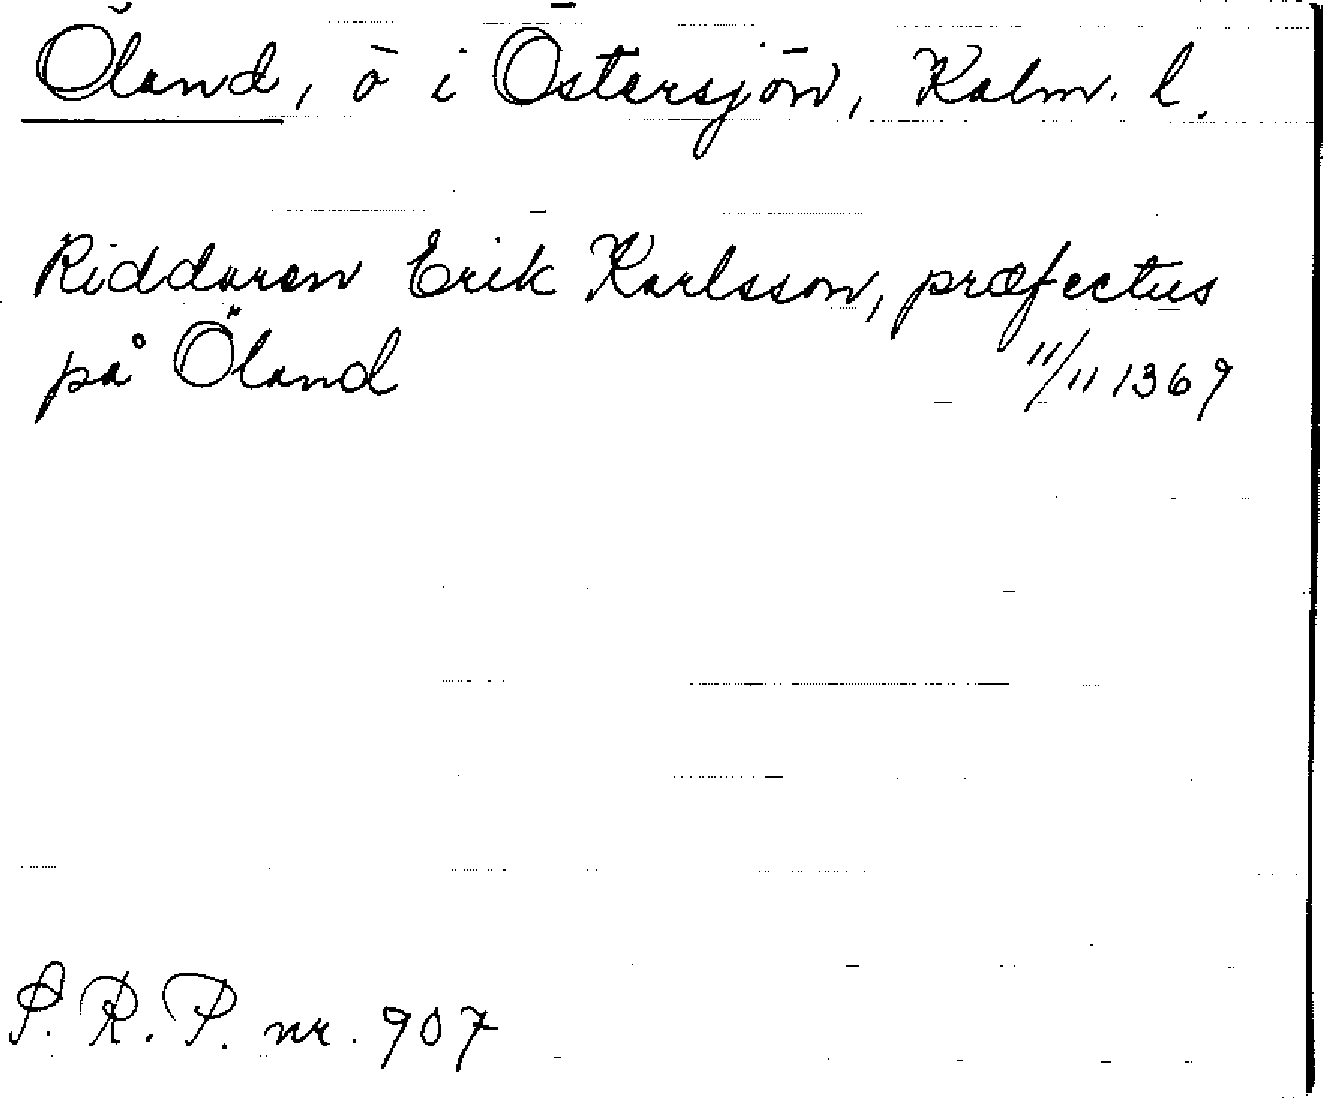 Öland, ö i Östersjön, Kalm. l.
Riddaren Erik Karlsson, præfectus
på Öland 11/11 1369
S. R. P. nr. 907